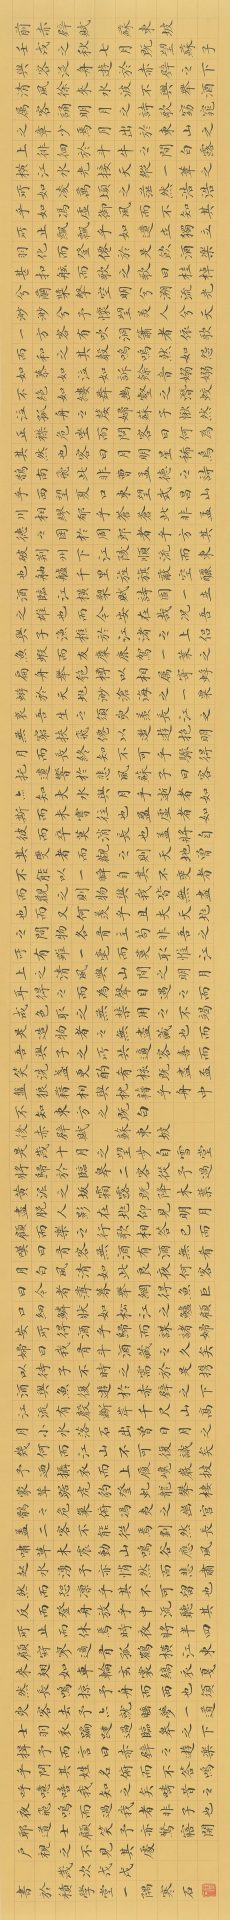 前赤壁賦 蘇東坡
壬戌之秋七月既望蘇子
與客泛舟遊於赤壁之下
清風徐來水波不興舉酒
屬客誦明月之詩歌窈窕
之章少焉月出於東山之
上徘徊於斗牛之間白露
橫江水光接天縱一葦之
所如凌萬頃之茫然浩浩
乎如馮虛御風而不知其
所止飄飄乎如遺世獨立
羽化而登仙於是飲酒樂
甚扣舷而歌之歌曰桂棹
兮蘭槳擊空明兮溯流光
渺渺兮予懷望美人兮天
一方客有吹洞簫者倚歌
而和之其聲嗚嗚然如怨
如慕如泣如訴餘音嫋嫋
不絕如縷舞幽壑之潛蛟
泣孤舟之嫠婦蘇子愀然
正襟危坐而問客曰何為
其然也客曰月明星稀烏
鵲南飛此非曹孟德之詩
乎西望夏口東望武昌山
川相繆鬱乎蒼蒼此非孟
德之困於周郎者乎方其
破荊州下江陵順流而東
也舳艫千里旌旗蔽空釃
酒臨江橫槊賦詩固一世
之雄也而今安在哉況吾
與子漁樵於江渚之上侶
魚蝦而友麋鹿駕一葉之
扁舟舉匏樽以相屬寄蜉
蝣於天地渺滄海之一粟
哀吾生之須臾羨長江之
無窮挾飛仙以遨遊抱明
月而長終知不可乎驟得
托遺響於悲風蘇子曰客
亦知夫水與月乎逝者如
斯而未嘗往也盈虛者如
彼而卒莫消長也蓋將自
其變者而觀之則天地曾
不能以一瞬自其不變者
而觀之則物與我皆無盡
也而又何羨乎且夫天地
之間物各有主苟非吾之
所有雖一毫而莫取惟江
上之清風與山間之明月
耳得之而為聲目遇之而
成色取之無禁用之不竭
是造物者之無盡藏也而
吾與子之所共適客喜而
笑洗盞更酌肴核既盡杯
盤狼藉相與枕藉乎舟中
不知東方之既白
後赤壁賦 蘇東坡
是歲十月之望步自雪堂
將歸於臨皋二客從予過
黃泥之坂霜露既降木葉
盡脫人影在地仰見明月
顧而樂之行歌相答已而
嘆曰有客無酒有酒無肴
月白風清如此良夜何客
曰今者薄暮舉網得魚巨
口細鱗狀如松江之鱸顧
安所得酒乎歸而謀諸婦
婦曰我有斗酒藏之久矣
以待子不時之需於是攜
酒與魚復遊於赤壁之下
江流有聲斷岸千尺山高
月小水落石出曾日月之
幾何而江山不可復識矣
予乃攝衣而上履巉巖披
蒙茸踞虎豹登虯龍攀棲
鶻之危巢俯馮夷之幽宮
蓋二客不能從焉劃然長
嘯草木震動山鳴谷應風
起水湧予亦悄然而悲肅
然而恐凜乎其不可留也
反而登舟放乎中流聽其
所止而休焉時夜將半四
顧寂寥適有孤鶴橫江東
來翅如車輪玄裳縞衣戛
然長鳴掠予舟而西也須
臾客去予亦就睡夢一道
士羽衣蹁躚過臨皋之下
揖予而言曰赤壁之遊樂
乎問其姓名俯而不答嗚
呼噫嘻我知之矣疇昔之
夜飛鳴而過我者非子也
耶道士顧笑予亦驚寤開
戶視之不見其處